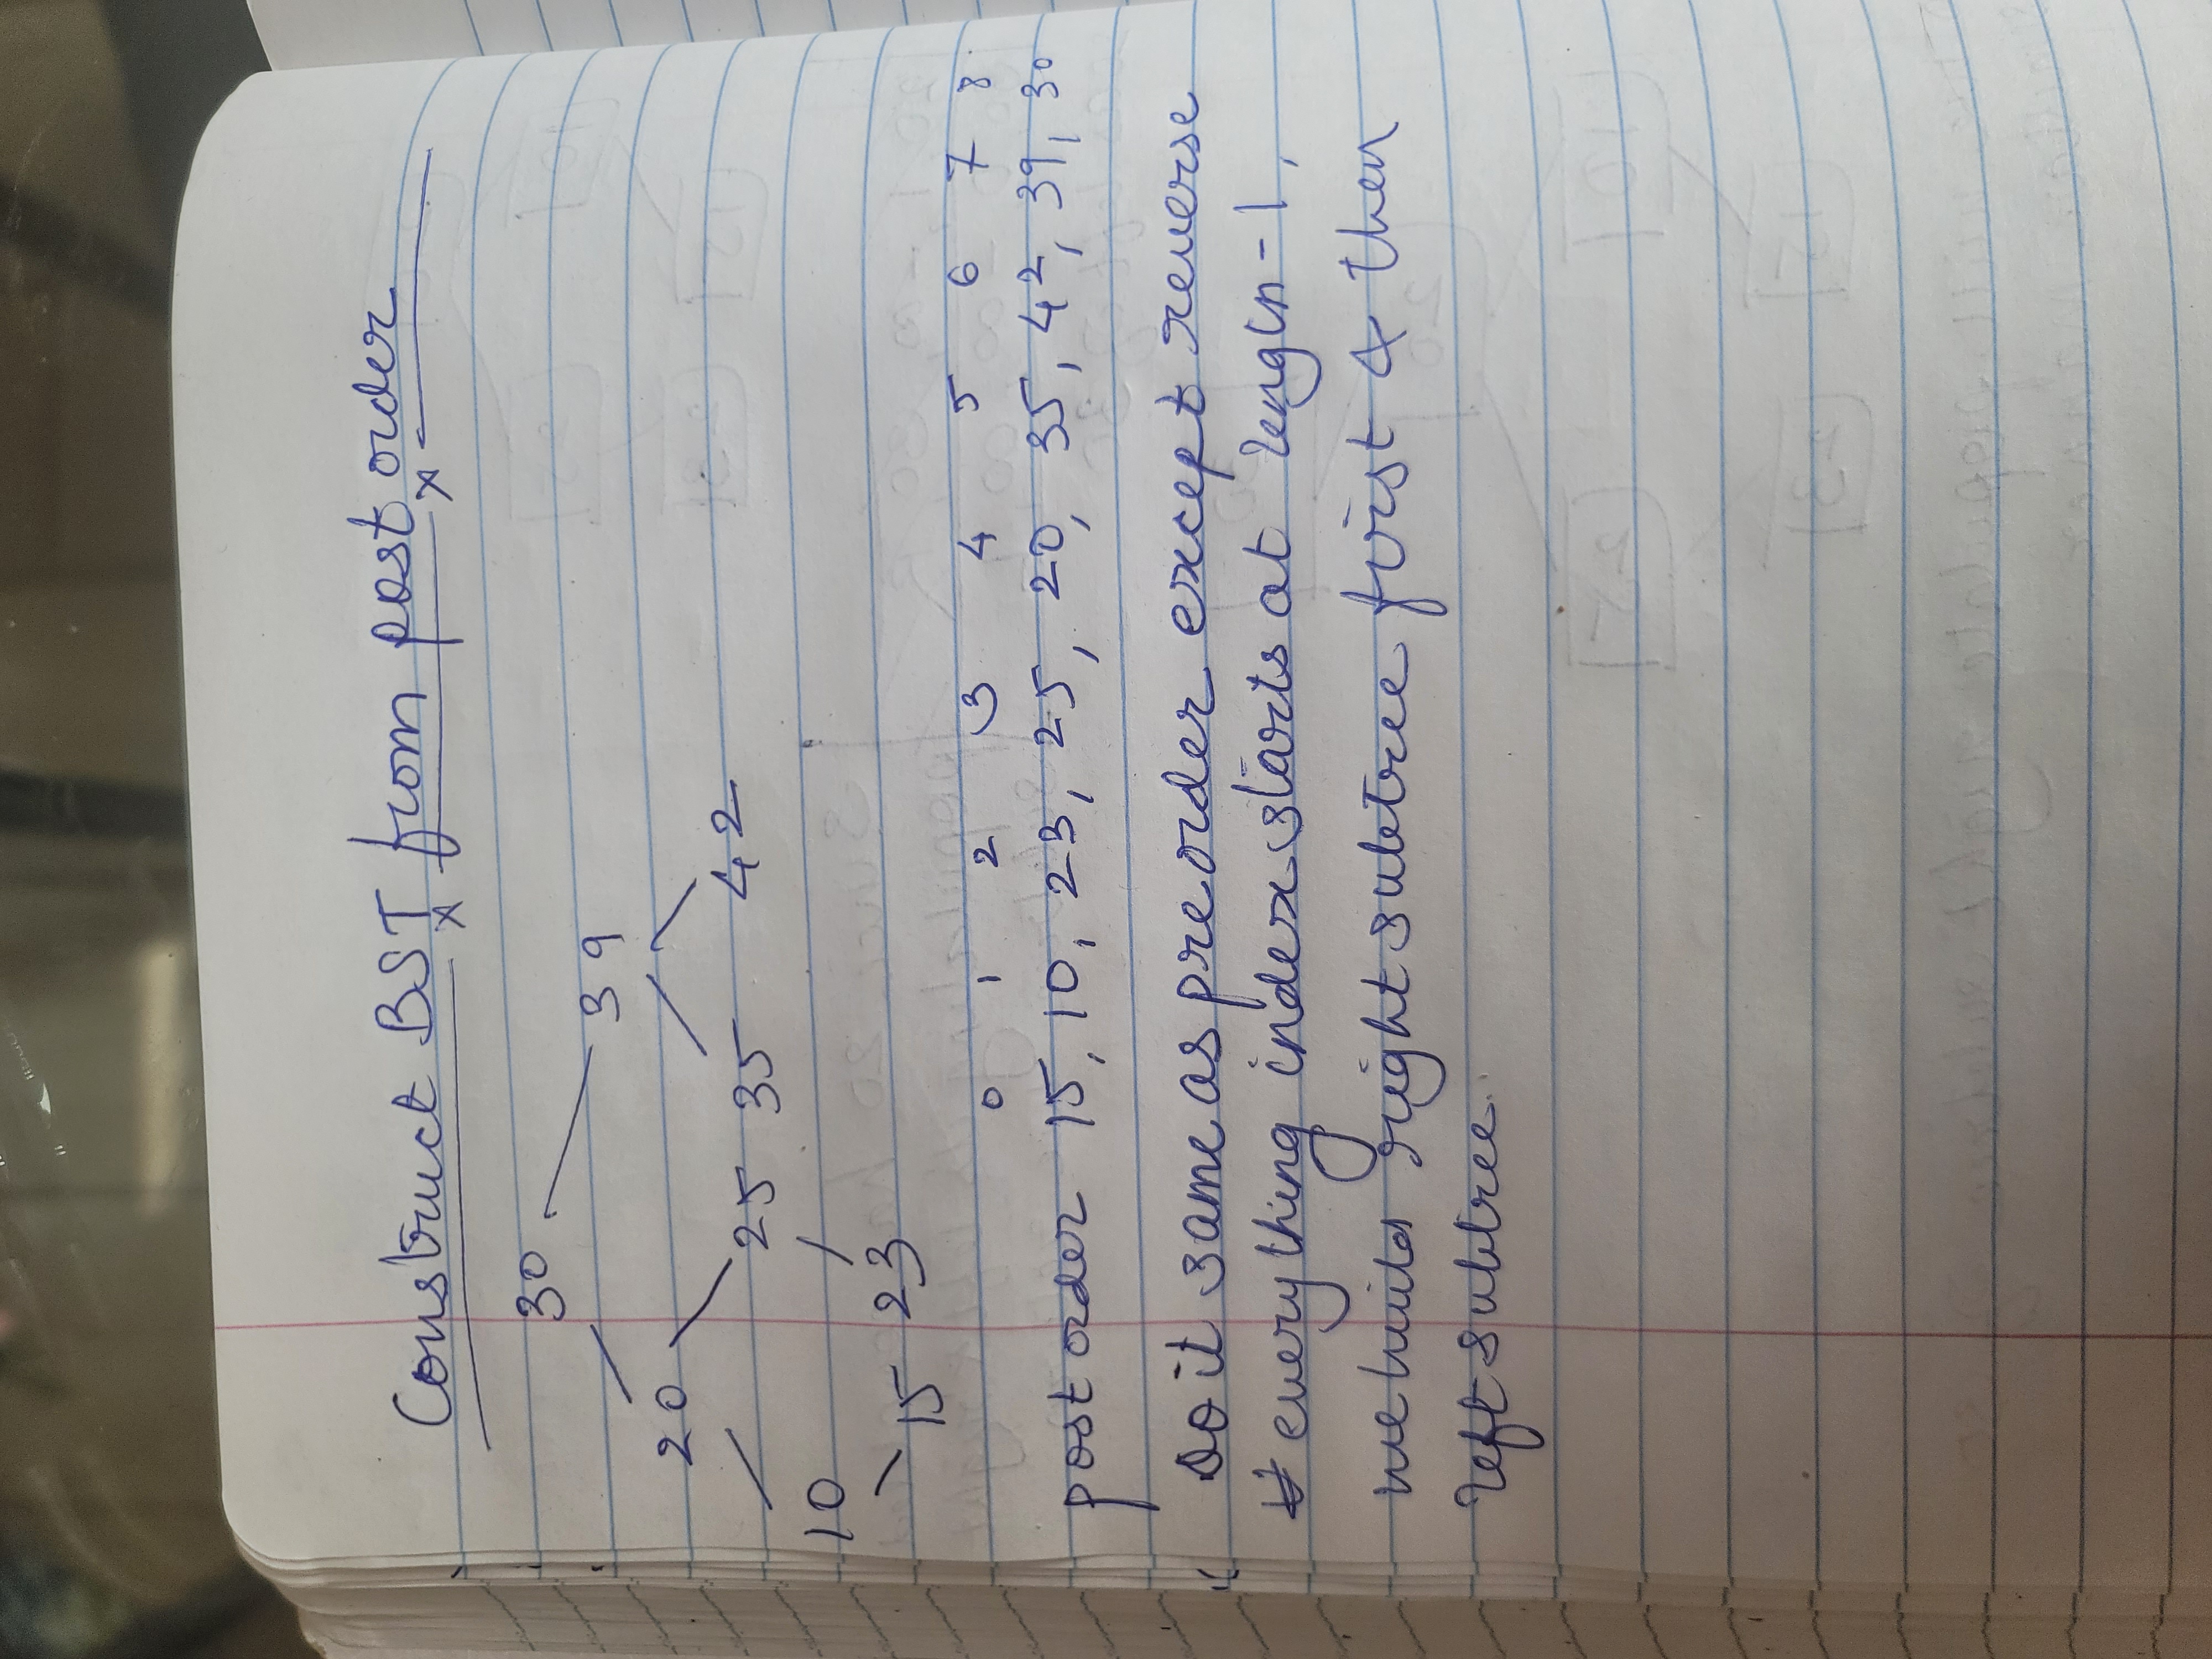 Construct BST from post order
30
39
20
25 35 42
10
15 23
0 1 2 3 4 5 6 7 8
post order 15, 10, 23, 25, 20, 35, 42, 39, 30
Do it same as preorder except reverse
everything index starts at length-1,
we build right subtree first & then
left subtree.